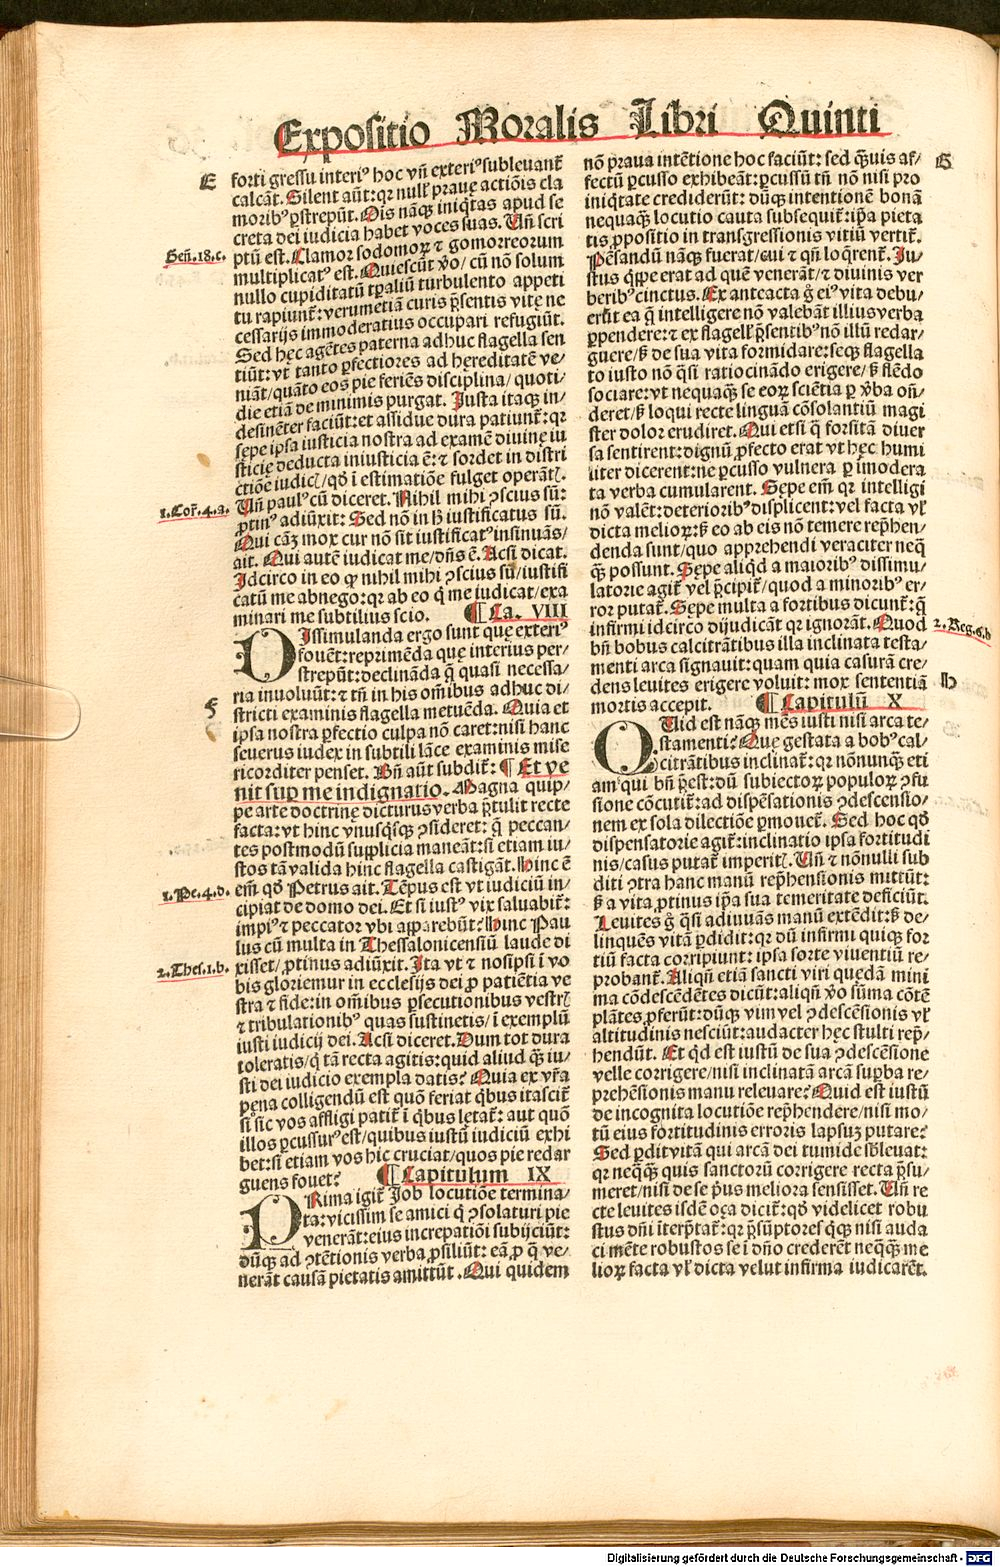 Expositio Moralis Libri Quinti
E
forti gressu interiꝰ hoc vñ exteriꝰ subleuant᷑
calcãt. Silent aũt: qꝛ null᷑ prauę actiõis cla
moribꝰ ꝑstrepũt. Dis nãqꝫ iniq̃tas apud se
creta dei iudicia habet voces suas. Uñ scri
Geñ.18.c.
ptũ est. Clamor sodomoꝝ ⁊ gomorreorum
multiplicatꝰ est. Quiescũt ꝟo/ cũ nõ solum
nullo cupiditatũ tꝑaliũ turbulento appeti
tu rapiunt᷑: verumetiã curis p̃sentis vitę ne
cessarijs immoderatius occupari refugiũt.
Sed hęc agẽtes paterna adhuc flagella sen
tiũt: vt tanto ꝑfectiores ad hereditatẽ ve/
niãt/ quãto eos pie feriẽs disciplina/ quoti/
die etiã de minimis purgat. Justa itaqꝫ in/
desinẽter faciũt: et assidue dura patiunt᷑: qꝛ
sępe ipsa iusticia nostra ad examẽ diuinę iu
sticię deducta iniusticia ẽ: ⁊ sordet in distri
ctiõe iudicꝭ/ qð ĩ estimatiõe fulget operãtꝭ.
1.Cor̃.4.a.
Uñ paulꝰ cũ diceret. Nihil mihi ꝯscius sũ:
ꝓtinꝰ adiũxit: Sed nõ in h̃ iustificatus sũ.
Qui cãꝫ mox cur nõ sit iustificatꝰ insinuãs/
ait. Qui autẽ iudicat me/ dñs ẽ. Acsi dicat.
Idcirco in eo ꝙ nihil mihi ꝯscius sũ/ iustifi
catũ me abnego: qꝛ ab eo q̇ me iudicat/ exa
minari me subtilius scio. ¶ Ca. VIII
DIssimulanda ergo sunt quę exteriꝰ
fouẽt: reprimẽda quę interius per/
strepũt: declinãda q̃ quasi necessa/
ria inuoluũt: ⁊ tñ in his om̃ibus adhuc di/
F
stricti examinis flagella metuẽda. Quia et
ipsa nostra ꝑfectio culpa nõ caret: nisi hanc
seuerus iudex in subtili lãce examinis mise
ricorditer penset. Bñ aũt subdit᷑: ¶ Et ve
nit suꝑ me indignatio. Magna quip/
pe arte doctrinę dicturus verba p̃tulit recte
facta: vt hinc vnusq̃sqꝫ ꝯsideret: q̃ peccan/
tes postmodũ supplicia maneãt: si etiam iu/
stos tã valida hinc flagella castigãt. Hinc ẽ
1.Pe.4.d.
em̃ qð Petrus ait. Tẽpus est vt iudiciũ in/
cipiat de domo dei. Et si iustꝰ vix saluabit᷑:
impiꝰ ⁊ peccator vbi apparebũt: Hinc Pau
lus cũ multa in Thessalonicensiũ laude di
2.Thes.1.b.
xisset/ ꝓtinus adiũxit. Ita vt ⁊ nosipsi ĩ vo
bis gloriemur in ecclesijs dei ꝓ patiẽtia ve
stra ⁊ fide: in om̃ibus ꝑsecutionibus vestrꝭ
⁊ tribulationibꝰ quas sustinetis/ ĩ exemplũ
iusti iudicij dei. Acsi diceret. Dum tot dura
toleratis/ q̇ tã recta agitis: quid aliud q̃ꝫ iu/
sti dei iudicio exempla datis? Quia ex vr̃a
pęna colligendũ est quõ feriat q̇bus itascit᷑
si sic vos affligi patit᷑ ĩ q̇bus lętat᷑: aut quõ
illos ꝑcussurꝰ est/ quibus iustũ iudiciũ exhi
bet: si etiam vos hic cruciat/ quos pie redar
guens fouet? ¶ Capitulum IX
PRima igit᷑ Job locutiõe termina/
ta: vicissim se amici q̇ ꝯsolaturi pie
venerãt: eius increpatiõi subijciũt:
dũqꝫ ad ꝯtẽtionis verba ꝓsiliũt: eã ꝓ q̃ ve/
nerãt causã pietatis amittũt. Qui quidem
G
nõ praua intẽtione hoc faciũt: sed q̃ꝫuis af/
fectũ ꝑcusso exhibeãt: ꝑcussũ tñ nõ nisi pro
iniq̃tate crediderũt: dũqꝫ intentionẽ bonã
nequaqꝫ locutio cauta subsequit᷑: ip̃a pieta
tis ꝓpositio in transgressionis vitiũ vertit᷑.
Pẽsandũ nãqꝫ fuerat/ cui ⁊ qñ loq̃rent᷑. Ju/
stus q̇ppe erat ad quẽ venerãt/ ⁊ diuinis ver
beribꝰ cinctus. Ex anteacta g̊ eiꝰ vita debu/
erũt ea q̃ intelligere nõ valebãt illius verba
ꝑpendere: ⁊ ex flagellꝭ p̃sentibꝰ nõ illũ redar/
guere/ ẞ de sua vita formidare: seqꝫ flagella
to iusto nõ q̃si ratiocinãdo erigere/ ẞ flẽdo
sociare: vt nequaqꝫ se eoꝝ sciẽtia ꝑ ꝟba oñ/
deret/ ẞ loqui recte linguã cõsolantiũ magi
ster dolor erudiret. Qui etsi q̃ forsitã diuer
sa sentirent: dignũ ꝓfecto erat vt hęc humi
liter dicerent: ne ꝑcusso vulnera ꝑ ĩmodera
ta verba cumularent. Sępe em̃ qꝛ intelligi
nõ valẽt: deterioribꝰ displicent: vel facta vl᷑
dicta melioꝝ: ẞ eo ab eis nõ temere rep̃hen/
denda sunt/ quo apprehendi veraciter neq̃
q̃ꝫ possunt. Sępe aliq̇d a maioribꝰ dissimu/
latorie agit᷑ vel p̃cipit᷑/ quod a minoribꝰ er/
ror putat᷑. Sępe multa a fortibus dicunt᷑: q̃
2.Reg.6.b
infirmi idcirco dijudicãt qꝛ ignorãt. Quod
bñ bobus calcitrãtibus illa inclinata testa/
menti arca signauit: quam quia casurã cre/
H
dens leuites erigere voluit: mox sententiã
mortis accepit. ¶ Capitulũ X
QUid est nãqꝫ mẽs iusti nisi arca te/
stamenti? Quę gestata a bobꝰ cal/
citrãtibus inclinat᷑: qꝛ nõnunqꝫ eti
am qui bñ p̃est: dũ subiectoꝝ populoꝝ ꝯfu
sione cõcutit᷑: ad dispẽsationis ꝯdescensio/
nem ex sola dilectiõe ꝑmouet᷑. Sed hoc qð
dispensatorie agit᷑: inclinatio ipsa fortitudi
nis/ casus putat᷑ imperitꝭ. Uñ ⁊ nõnulli sub
diti ꝯtra hanc manũ rep̃hensionis mittũt:
ẞ a vita ꝓtinus ip̃a sua temeritate deficiũt.
Leuites g̊ q̃si adiuuãs manũ extẽdit: ẞ de/
linquẽs vitã ꝑdidit: qꝛ dũ infirmi quiqꝫ for
tiũ facta corripiunt: ipsa sorte viuentiũ re/
probant᷑. Aliqñ etiã sancti viri quędã mini
ma cõdescẽdẽtes dicũt: aliqñ ꝟo sũma cõtẽ
plãtes ꝓferũt: dũqꝫ vim vel ꝯdescẽsionis vl᷑
altitudinis nesciũt: audacter hęc stulti rep̃/
hendũt. Et q̇d est iustũ de sua ꝯdescẽsione
velle corrigere/ nisi inclinatã arcã suꝑba re/
prehẽsionis manu releuare? Quid est iustũ
de incognita locutiõe rep̃hendere/ nisi mo/
tũ eius fortitudinis erroris lapsuꝫ putare?
Sed ꝑdit vitã qui arcã dei tumide sb̃leuat:
qꝛ neq̃qꝫ quis sanctorũ corrigere recta p̃su/
meret/ nisi de se p̃us meliora sensisset. Uñ re
cte leuites isdẽ oça dicit᷑: qð videlicet robu
stus dñi iterp̃tat᷑: qꝛ p̃sũptores q̇qꝫ nisi auda
ci mẽte robustos se ĩ dño crederẽt neq̃qꝫ me
lioꝝ facta vl᷑ dicta velut infirma iudicarẽt.
Digitalisierung gefördert durch die Deutsche Forschungsgemeinschaft - DFG